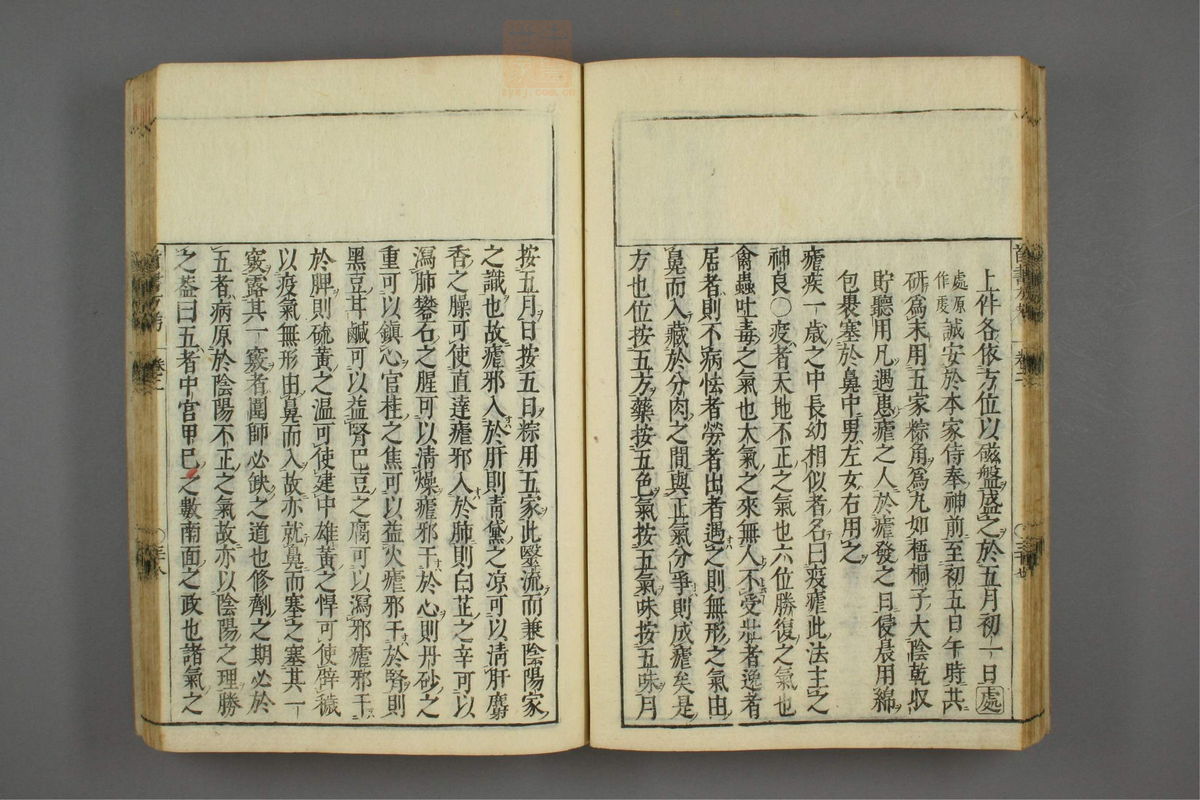 上件各依方位以磁盤盛之於五月初一日處
處原作度誠安於本家侍奉神前至初五日午時共
研爲末用五家粽角爲丸如梧桐子大陰乾収
貯聽用凡遇患瘧之人於瘧發之日侵晨用綿
包裹塞於鼻中男左女右用之
瘧疾一歲之中長幼相似者名曰疫瘧此法主之
神良〇疫者天地不正之氣也六位勝復之氣也
禽蟲吐毒之氣也大氣之來無人不受壯者逸者
居者則不病怯者勞者出者遇之則無形之氣由
鼻而入藏於分肉之間與正氣分爭則成瘧矣是
方也位按五方藥按五色氣按五氣味按五味月
按五月日按五日粽用五家此毉流而兼陰陽家
之識也故瘧邪入於肝則青黛之凉可以清肝麝
香之臊可使直達瘧邪入於肺則白芷之辛可以
瀉肺礬石之腥可以清燥瘧邪干於心則丹砂之
重可以鎭心官桂之焦可以益火瘧邪干於腎則
黑豆甘鹹可以益腎巴豆之腐可以瀉邪瘧邪干
於脾則硫黄之温可使建中雄黄之悍可使辟穢
以疫氣無形由鼻而入故亦就鼻而塞之塞其一
竅露其一竅者圍師必缺之道也修劑之期必於
五者病原於陰陽不正之氣故亦以陰陽之理勝
之葢曰五者中宫甲巳之數南面之政也諸氣之
卷之二